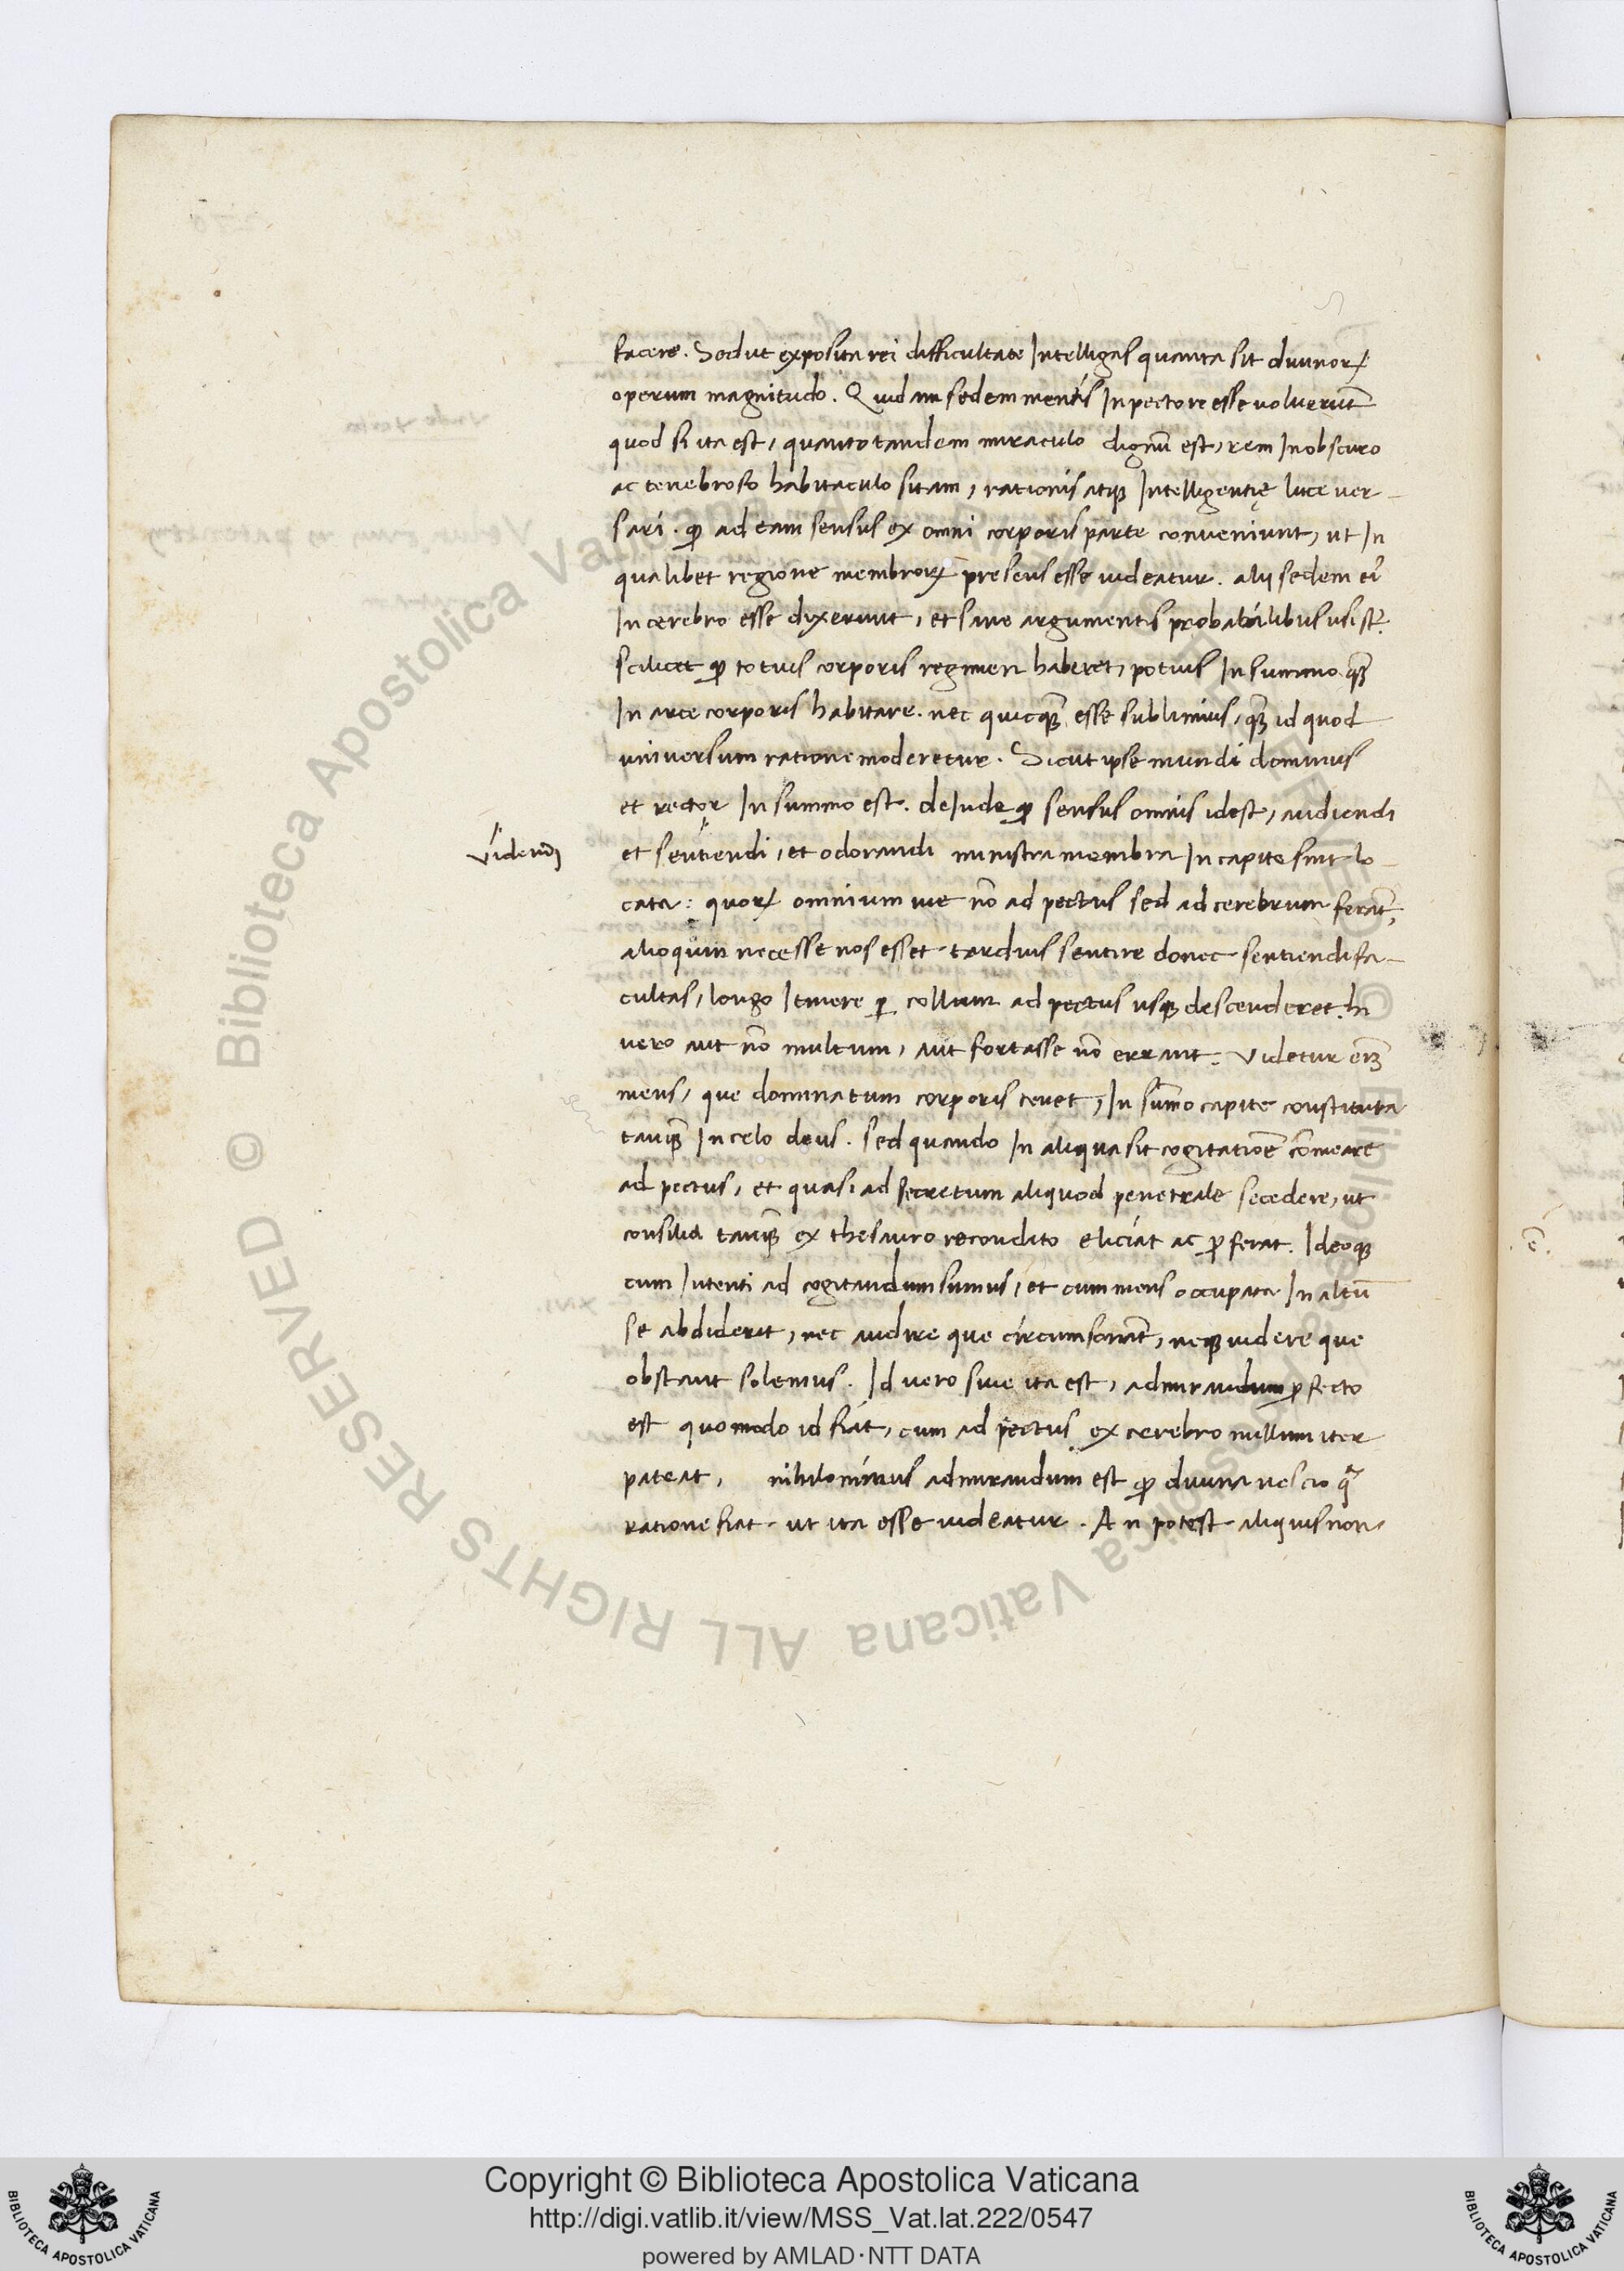 facere. Sed ut exposita rei difficultate Intelligas quanta sit diuinoꝝ
operum magnitudo. Quidam sedem mentis In pectore esse uoluerūt
quod si ita est, quanto tandem miraculo dignū est, rem In obscuro
ac tenebroso habitaculo sitam, rationis atqꝫ Intelligentię luce uer-
sari. ꝙ ad eam sensus ex omni corporis parte conueniunt, ut In
qualibet regione membroꝝ presens esse uideatur. alij sedem eiꝰ
In cerebro esse dixerunt, et sane argumentis probabilibus usi sūt.
scilicet ꝙ totius corporis regimen haberet, potius In summo qꝫ̄
In arce corporis habitare. nec quicqꝫ̄ esse sublimius, qꝫ̄ id quod
uniuersum ratione moderetur. Sicut ipse mundi dominus
et rector In summo est. deInde ꝙ sensus omnis idest, audiendi
uidendi
et sentiendi, et odorandi ministra membra In capite sint lo-
cata: quoꝝ omnium uie nō ad pectus sed ad cerebrum ferāt,
alioquin necesse nos esset tardius sentire donec sentiendi fa-
cultas, longo Itinere ꝑ collum ad pectus usqꝫ descenderet. hi
uero aut nō multum, aut fortasse nō errant. Videtur eīꝫ
mens, que dominatum corporis tenet, In sūmo capite constituta
tanqꝫ̄ In celo deus. sed quando In aliqua sit cogitatiōe cōmeare
ad pectus, et quasi ad secretum aliquod penetrale secedere, ut
consilia tanqꝫ̄ ex thesauro recondito eliciat ac ꝓferat. Ideoqꝫ
cum Intenti ad cogitandum sumus, et cum mens occupata In altū
se abdiderit, nec audire que circumsonāt, neqꝫ uidere que
obstant solemus. Id uero siue ita est, admirandum ꝓfecto
est quomodo id fiat, cum ad pectus ex cerebro nullum iter
pateat, nihilominus admirandum est ꝙ diuina nescio qͣ
ratione fiat ut ita esse uideatur. An potest aliquis non
.ē.
Copyright © Biblioteca Apostolica Vaticana
http://digi.vatlib.it/view/MSS_Vat.lat.222/0547
powered by AMLAD·NTT DATA
BIBLIOTECA APOSTOLICA VATICANA
BIBLIOTECA APOSTOLICA VATICANA
© Biblioteca Apostolica Vaticana ALL RIGHTS RESERVED